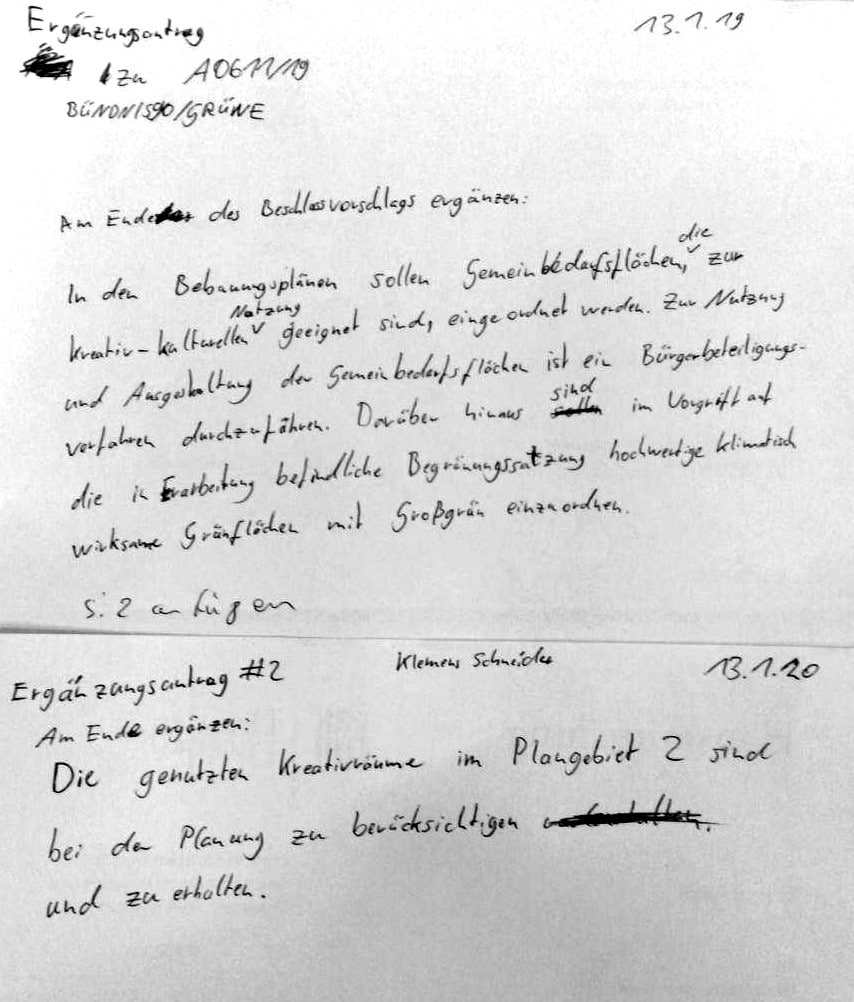 Ergänzungsantrag 13.1.19
zu A0611/19
BÜNDNIS90/GRÜNE
Am Ende des Beschlossvorschlags ergänzen:
In den Bebauungsplänen sollen Gemeinbedarfsflächen, die zur
kreativ-kulturellen Nutzung geeignet sind, eingeordnet werden. Zur Nutzung
und Ausgestaltung der Gemeinbedarfsflächen ist ein Bürgerbeteiligungs-
verfahren durchzuführen. Darüber hinaus sind im Vorgriff auf
die in Erarbeitung befindliche Begrünungssatzung hochwertige klimatisch
wirksame Grünflächen mit Großgrün einzuordnen.
S. 2 anfügen
Ergänzungsantrag #2 Klemens Schneider 13.1.20
Am Ende ergänzen:
Die genutzten Kreativräume im Plangebiet 2 sind
bei der Planung zu berücksichtigen
und zu erhalten.